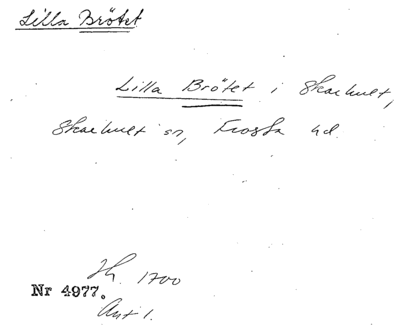 Lilla Brötet
Lilla Brötet i Skarhult,
Skarhult sn, Frosta hd.
Jh. 1700
Nr 4977.
Avt 1.